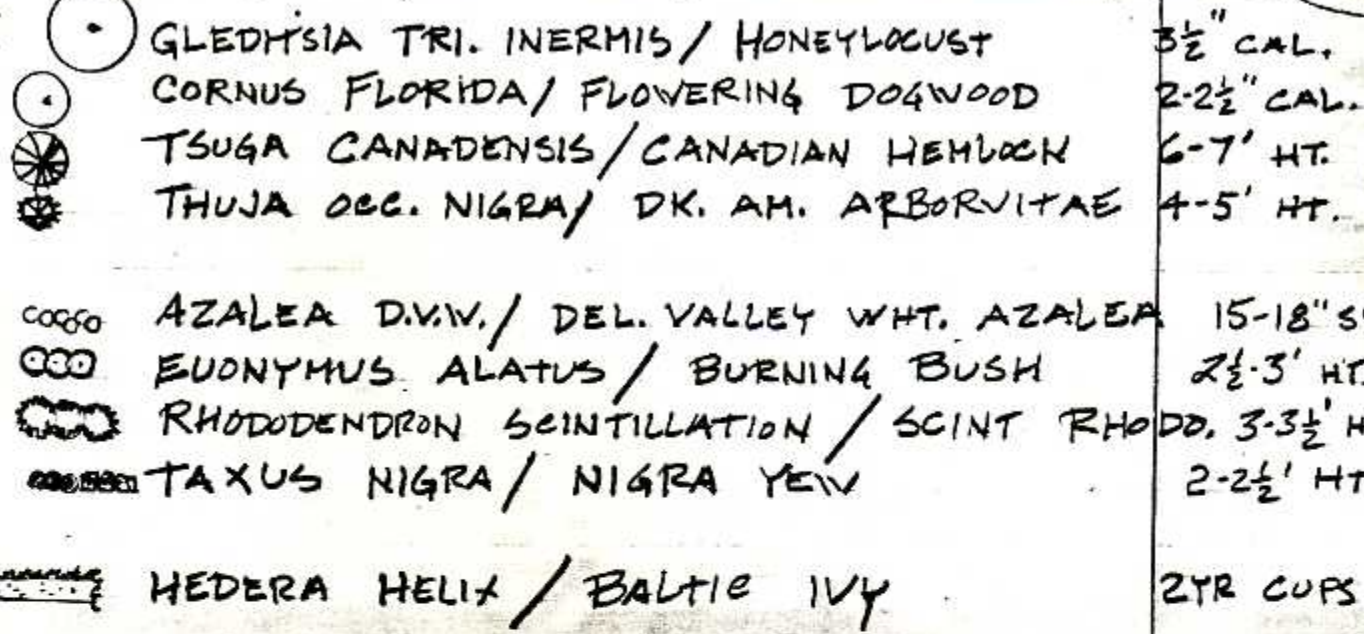 GLEDITSIA TRI. INERMIS / HONEYLOCUST 3½" CAL.
CORNUS FLORIDA / FLOWERING DOGWOOD 2-2½" CAL.
TSUGA CANADENSIS / CANADIAN HEMLOCK 6-7' HT.
THUJA OCC. NIGRA / DK. AM. ARBORVITAE 4-5' HT.
AZALEA D.V.W. / DEL. VALLEY WHT. AZALEA 15-18" S
EUONYMUS ALATUS / BURNING BUSH 2½-3' HT.
RHODODENDRON SCINTILLATION / SCINT RHODO. 3-3½' H
TAXUS NIGRA / NIGRA YEW 2-2½' HT
HEDERA HELIX / BALTIC IVY 2YR CUPS